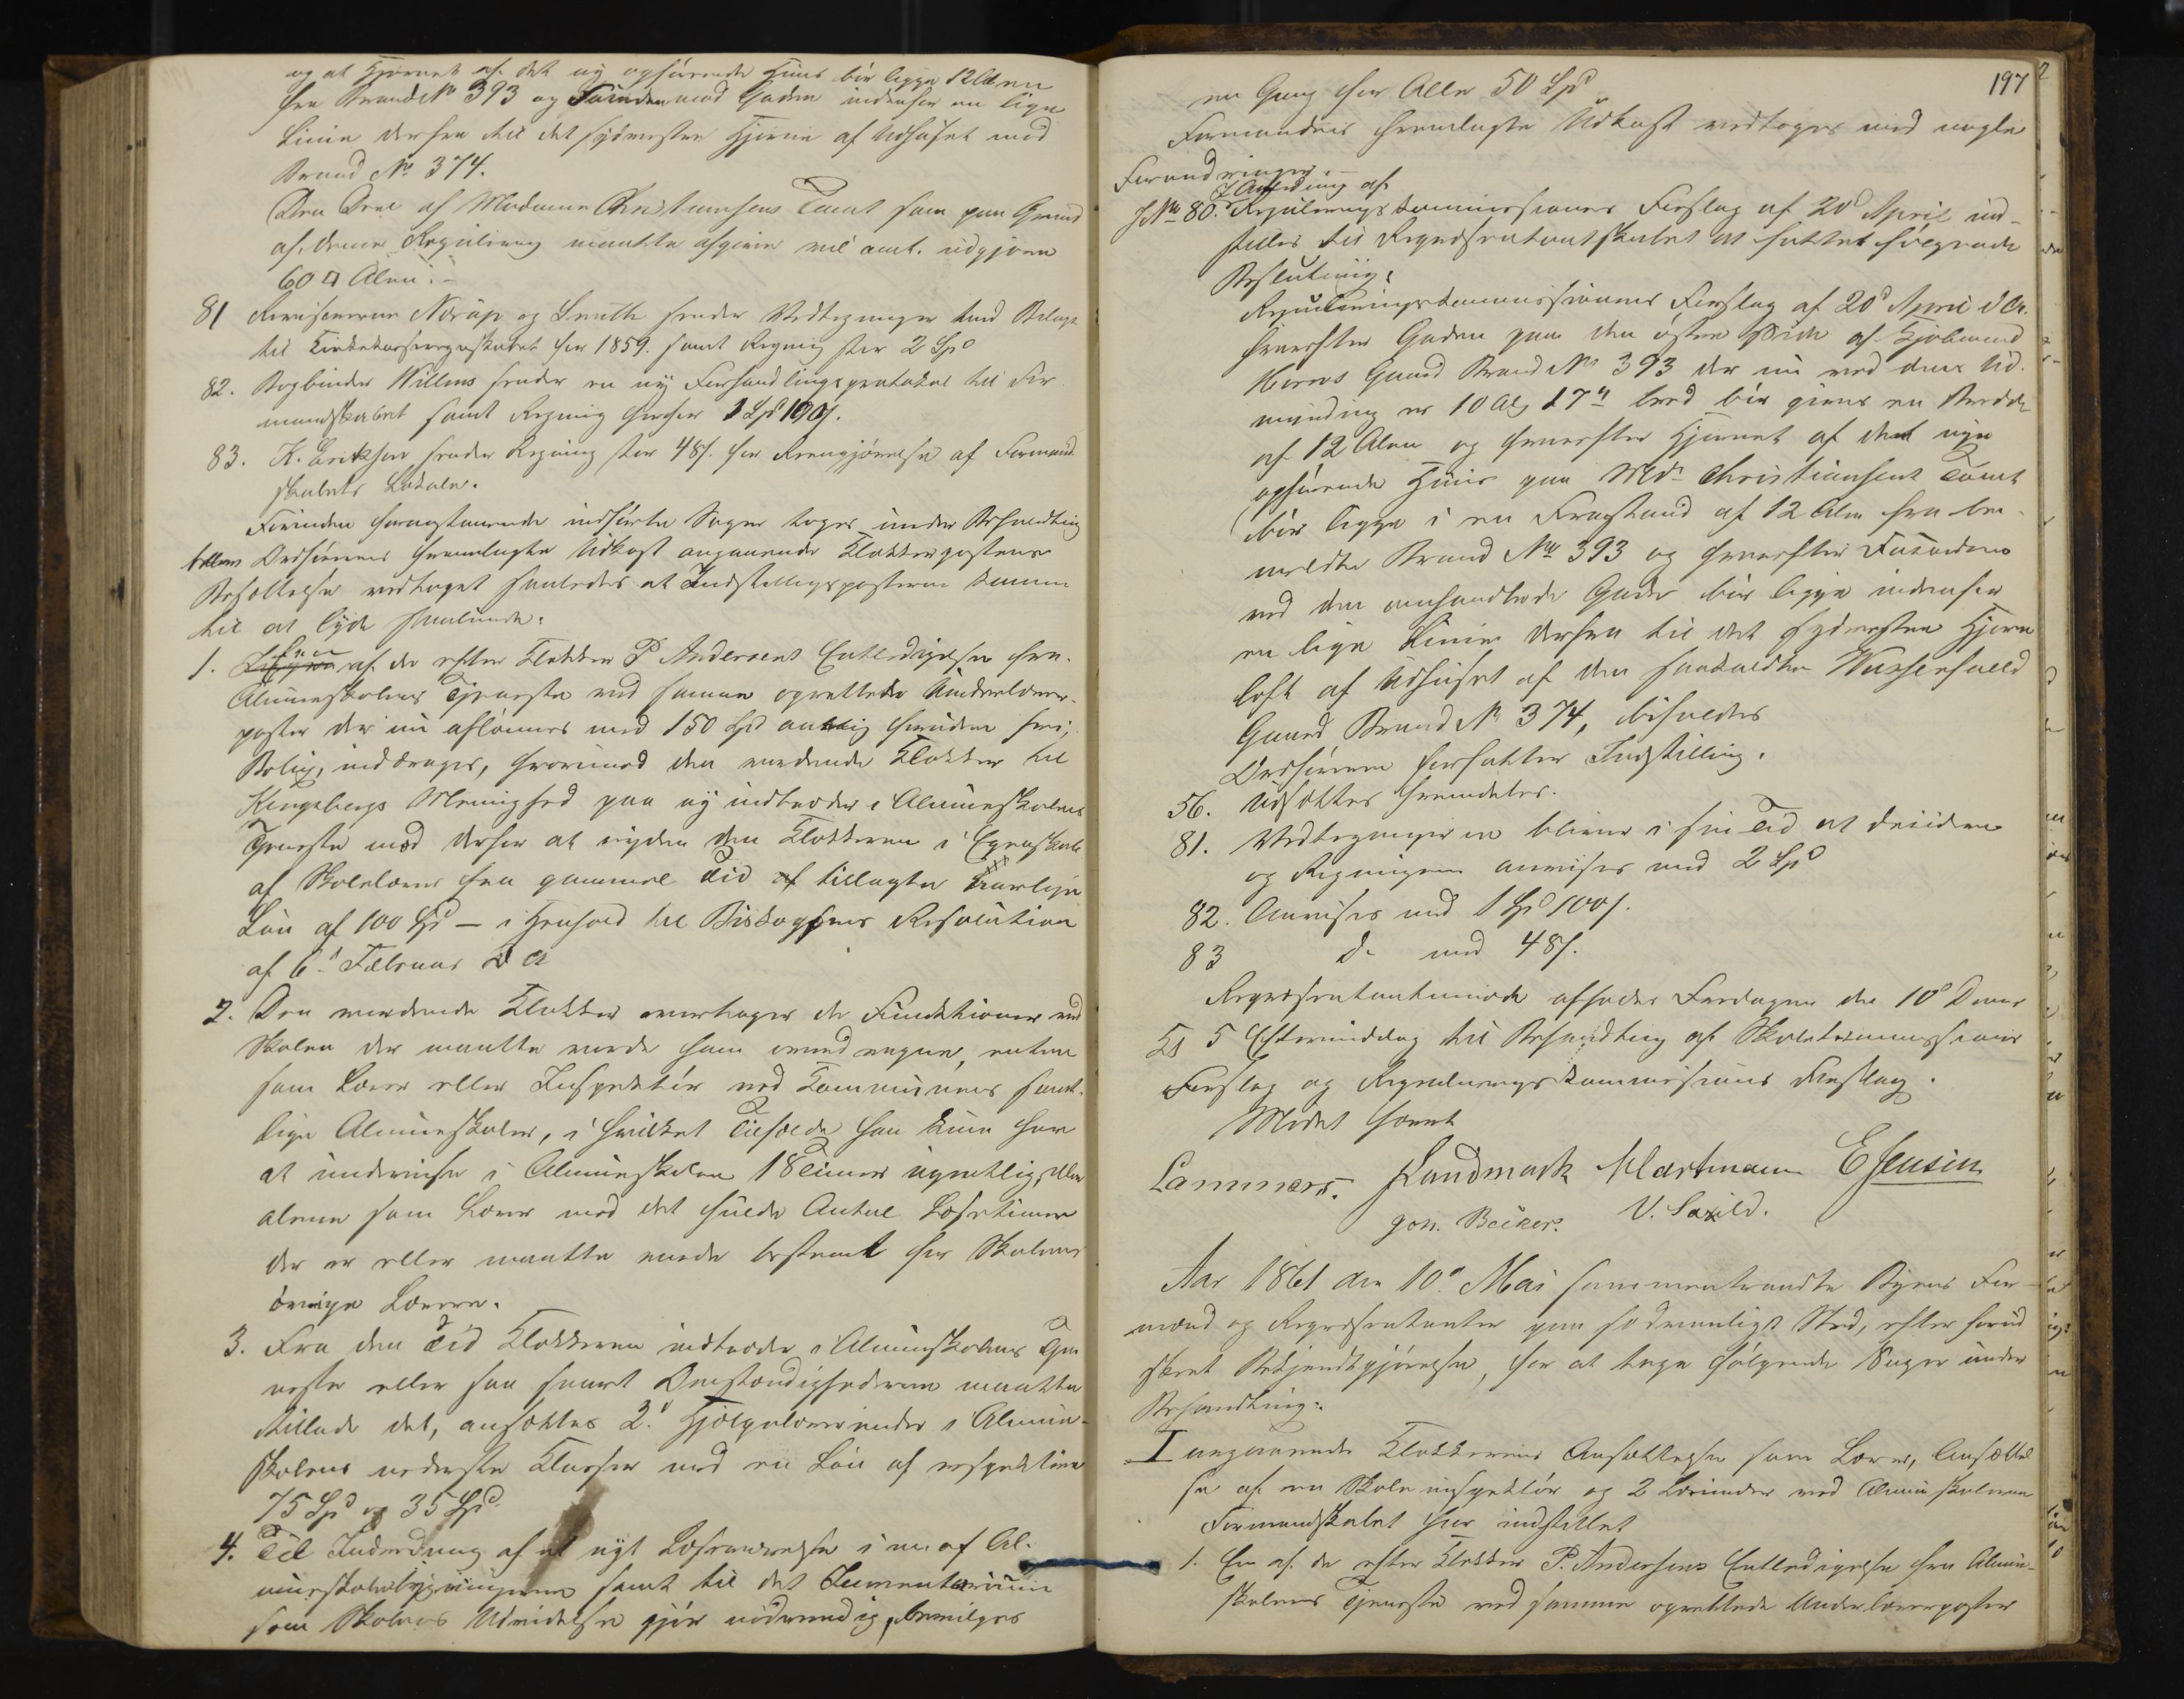 og at Hjørnet af det ny opførende Huus bør ligge 12 Alen
fra Brand No 393 og Facaden mod Gaden indenfor en lige
Linie derfra til det sydvestre Hjørne af Udhuset med
Brand No 374.
Den Deel af Madame Christiansens Tomt som paa Grund
af denne Regulering maatte afgives vil omt. udgjøre
60 □ Alen.-
81 Revisorerne Norup og Smith sender Vedtegninger med Bilage
til Kirkekasseregnskabet for 1859. samt Regning stor 2 Spd
82. Bogbinder Willums sender en ny Forhandlingsprotokol til For-
mandskabet samt Regning herfor 1 Spd 100 s.
83. K. Eriksen sender Regning stor 48 s. for Rengjørelse af Formand-
skabets Lokale.
Forinden foranstaaende indførte Sager toges under Behandling
blev Ordførerens fremlagte Udkast angaaende Klokkerpostens
Besættelse vedtaget saaledes at Indstillingsposterne komme
til at lyde saalunde:
1. En af de efter Klokker P Andersens Entledigelse fra
Almueskolens Tjeneste ved samme oprettede Underlærer-
poster der nu aflønnes med 150 Spd aarlig foruden fri
Bolig, inddrages, hvorimod den vordende Klokker til
Kongsbergs Menighed paa ny indtræder i Almueskolens
Tjeneste mod derfor at nyde den Klokkeren i Egenskab
af Skolelærer fra gammel Tid tillagte aarlige
Løn af 100 Spd – i Henhold til Biskoppens Resolution
af 6te Februar d. A
2. Den vordende Klokker overtager de Funktioner ved
Skolen der maatte vorde ham overdragne, enten
som Lærer eller Inspektør ved Kommunens samt-
lige Almueskoler, i hvilket Tilfælde han kun har
at undervise i Almueskolen 18 Timer ugentlig, eller
alene som Lærer med det fulde Antal Læsetimer
der er eller maatte vorde bestemt for Skolens
øvrige Lærere.
3. Fra den Tid Klokkeren indtræder i Almueskolens Tje-
neste eller saa snart Omstændighederne maatte
tillade det, ansættes 2de Hjælpelærerinder i Almue-
skolens nederste Klasser med en Løn af respektive
75 Spd og 35 Spd
4. Til Indredning af et nyt Læseværelse i en af Al-
mueskolebygningerne samt til det Inventarium
som Skolens Udvidelse gjør nødvendig, bevilges
197
en Gang for Alle 50 Spd
Formandens fremlagte Udkast vedtoges med nogle
Forandringer.-
I Anledning af
J No 80. Reguleringskommissionens Forslag af 20d April ind-
stilles til Repræsentantskabet at fatte følgende
Beslutning:
Reguleringskommissionens Forslag af 20d April d Ar.
hvorefter Gaden paa den østre Side af Kjøbmand
Gaard Brand No 393 der nu ved dens Ud-
munding er 10 Al 17" bred bør gives en Bredde
af 12 Alen og hvorefter Hjørnet af det nye
opførende Huus paa Md. Christiansens Tomt
bør ligge i en Frastand af 12 Alen fra be-
meldte Brand No 393 og hvorefter Facaden
ved den omhandlede Gade bør ligge indenfor
en lige Linie derfra til det sydvestre Hjørne
af Udhuset af den saakaldte
Gaard Brand No 374, bifaldes
Ordføreren forfatter Indstilling.
56. Udsættes fremdeles.
81. Vedtegningerne bliver i sin Tid at decidere
og Regningen anvises med 2 Spd
82. Anvises med 1 Spd 100 s.
83 do med 48 s.
Repræsentantmøde afholdes Fredagen den 10d Dennes
Kl 5 Eftermiddag til Behandling af Skolekommissionens
Forslag og Reguleringskommissionens Forslag.
Mødet hævet
Lammers. Landmark Martmann E Jensen
Joh. Becker. V. Saxild.
Aar 1861 den 10d Mai sammentraadte Byens For-
mænd og Repræsentanter paa sædvanligt Sted, efter forud
skeet Bekjendtgjørelse, for at tage følgende Sager under
Behandling:
I angaaende Klokkerens Ansættelse som Lærer, Ansættel
se af en Skoleinspektør og 2 Lærerinder ved Almueskolerne
Formandskabet har indstillet
1. En af de efter Klokker P. Andersens Entledigelse fra Almue-
skolens Tjeneste ved samme oprettede Underlærerposter